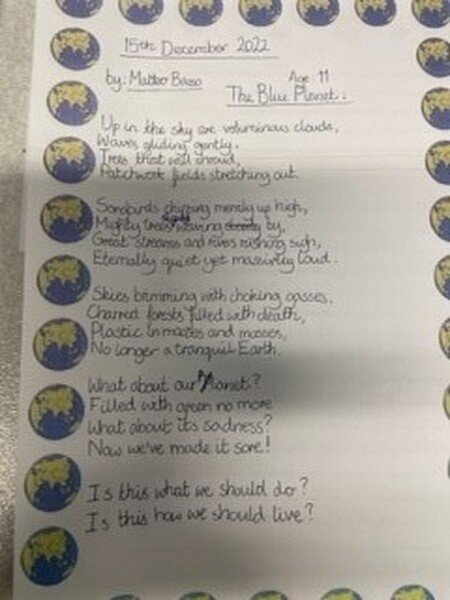 15th December 2022
by: Matteo Age: 11
The Blue Planet.
Up in the sky are voluminous clouds,
Waves gliding gently.
Trees that will shroud,
Patchwork fields stretching out.
Songbirds chirping merrily up high,
Mighty trees waving by,
Great streams and rivers rushing sigh,
Eternally quiet yet massively loud.
Skies brimming with choking gasses,
Charred forests filled with death,
Plastic in mattes and masses,
No longer a tranquil Earth.
What about our Planet?
Filled with green no more
What about its sadness?
Now we've made it sore!
Is this what we should do?
Is this how we should live?